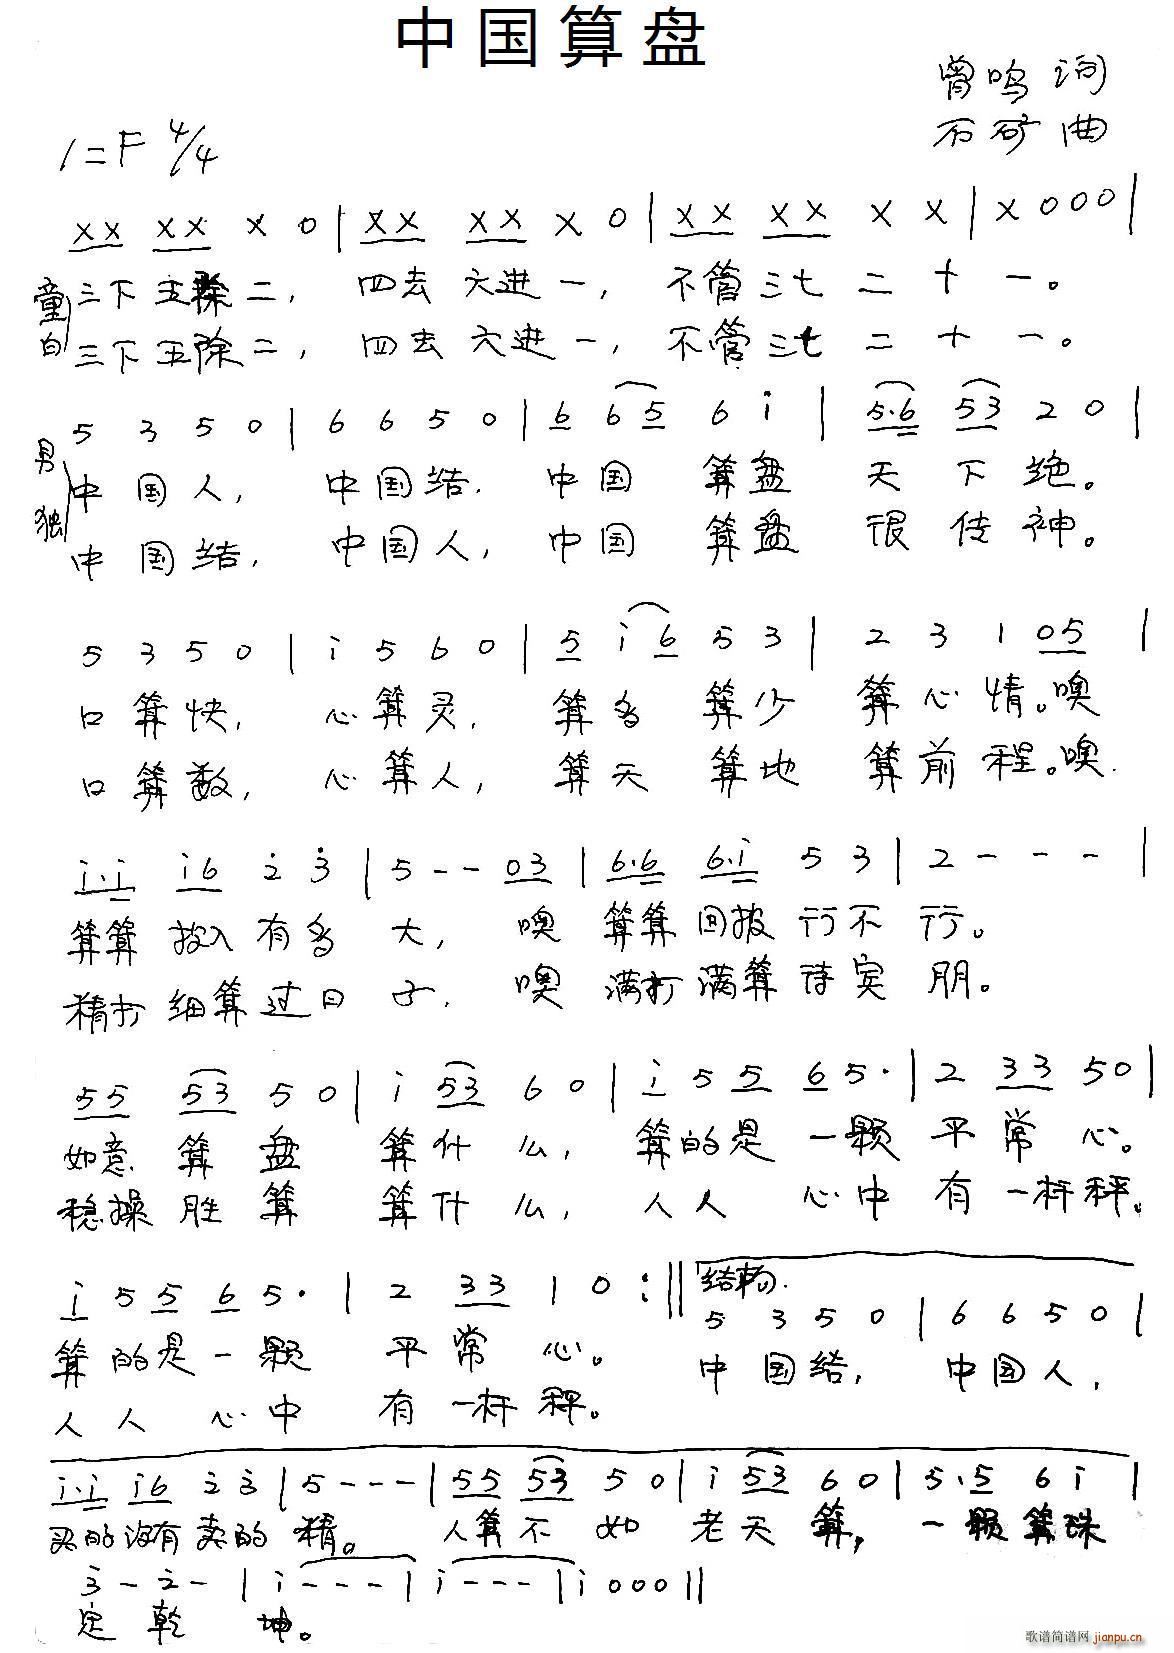 中国算盘
曾鸣 词
石矿 曲
1=F 4/4
XX XX X 0 | XX XX X 0 | XX XX X X | X 0 0 0 |
童白 三下五除二, 四去六进一, 不管三七二十一。
三下五除二, 四去六进一, 不管三七二十一。
5 3 5 0 | 6 6 5 0 | 6 6 5 6 i | 5.6 53 2 0 |
男独 中国人, 中国结. 中国 算盘 天下绝。
中国结, 中国人, 中国 算盘 很传神。
5 3 5 0 | i 5 6 0 | 5 i 6 5 3 | 2 3 1 05 |
口算快, 心算灵, 算多 算少 算心情。噢
口算数, 心算人, 算天 算地 算前程。噢.
i.i i6 2̇ 3̇ | 5 - - 03 | 6.6 6.i 5 3 | 2 - - - |
算算 投入 有多 大, 噢 算算 回报 行不 行。
精打 细算 过日 子, 噢 满打 满算 待宾 朋。
55 53 5 0 | i 53 6 0 | i 5 5 6 5. | 2 33 5 0 |
如意 算 盘 算什么, 算的是一颗 平常心。
稳操 胜 算 算什么, 人人 心中 有一杆秤。
i 5 5 6 5. | 2 33 1 0 :|| 结束句. 5 3 5 0 | 6 6 5 0 |
算的是一颗 平常心。 中国结, 中国人,
人人 心中 有一杆秤。
i.i i6 2̇ 3̇ | 5 - - - | 55 53 5 0 | i 53 6 0 | 5.5 6 i |
买的没有卖的 精。 人算不如 老天算, 一颗算珠
3̇ - 2̇ - | i - - - | i - - - | i 0 0 0 ||
定乾 坤。
歌谱简谱网 jianpu.cn